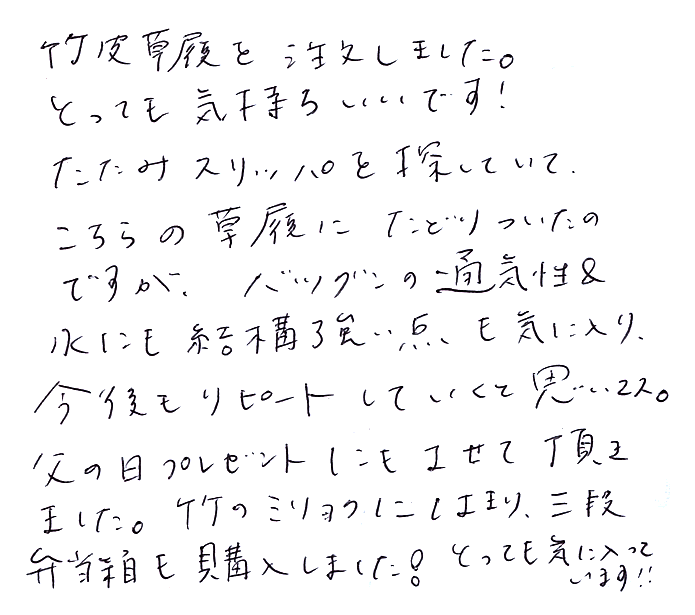 竹皮草履を注文しました。
とっても気持ちいいです!
たたみスリッパを探していて、
こちらの草履にたどりついたの
ですが、バツグンの通気性&
水にも結構強い点も気に入り、
今後もリピートしていくと思います。
父の日プレゼントにもさせて頂き
ました。竹のミリョクにはまり、三段
弁当箱も購入しました!とっても気に入って
います!!